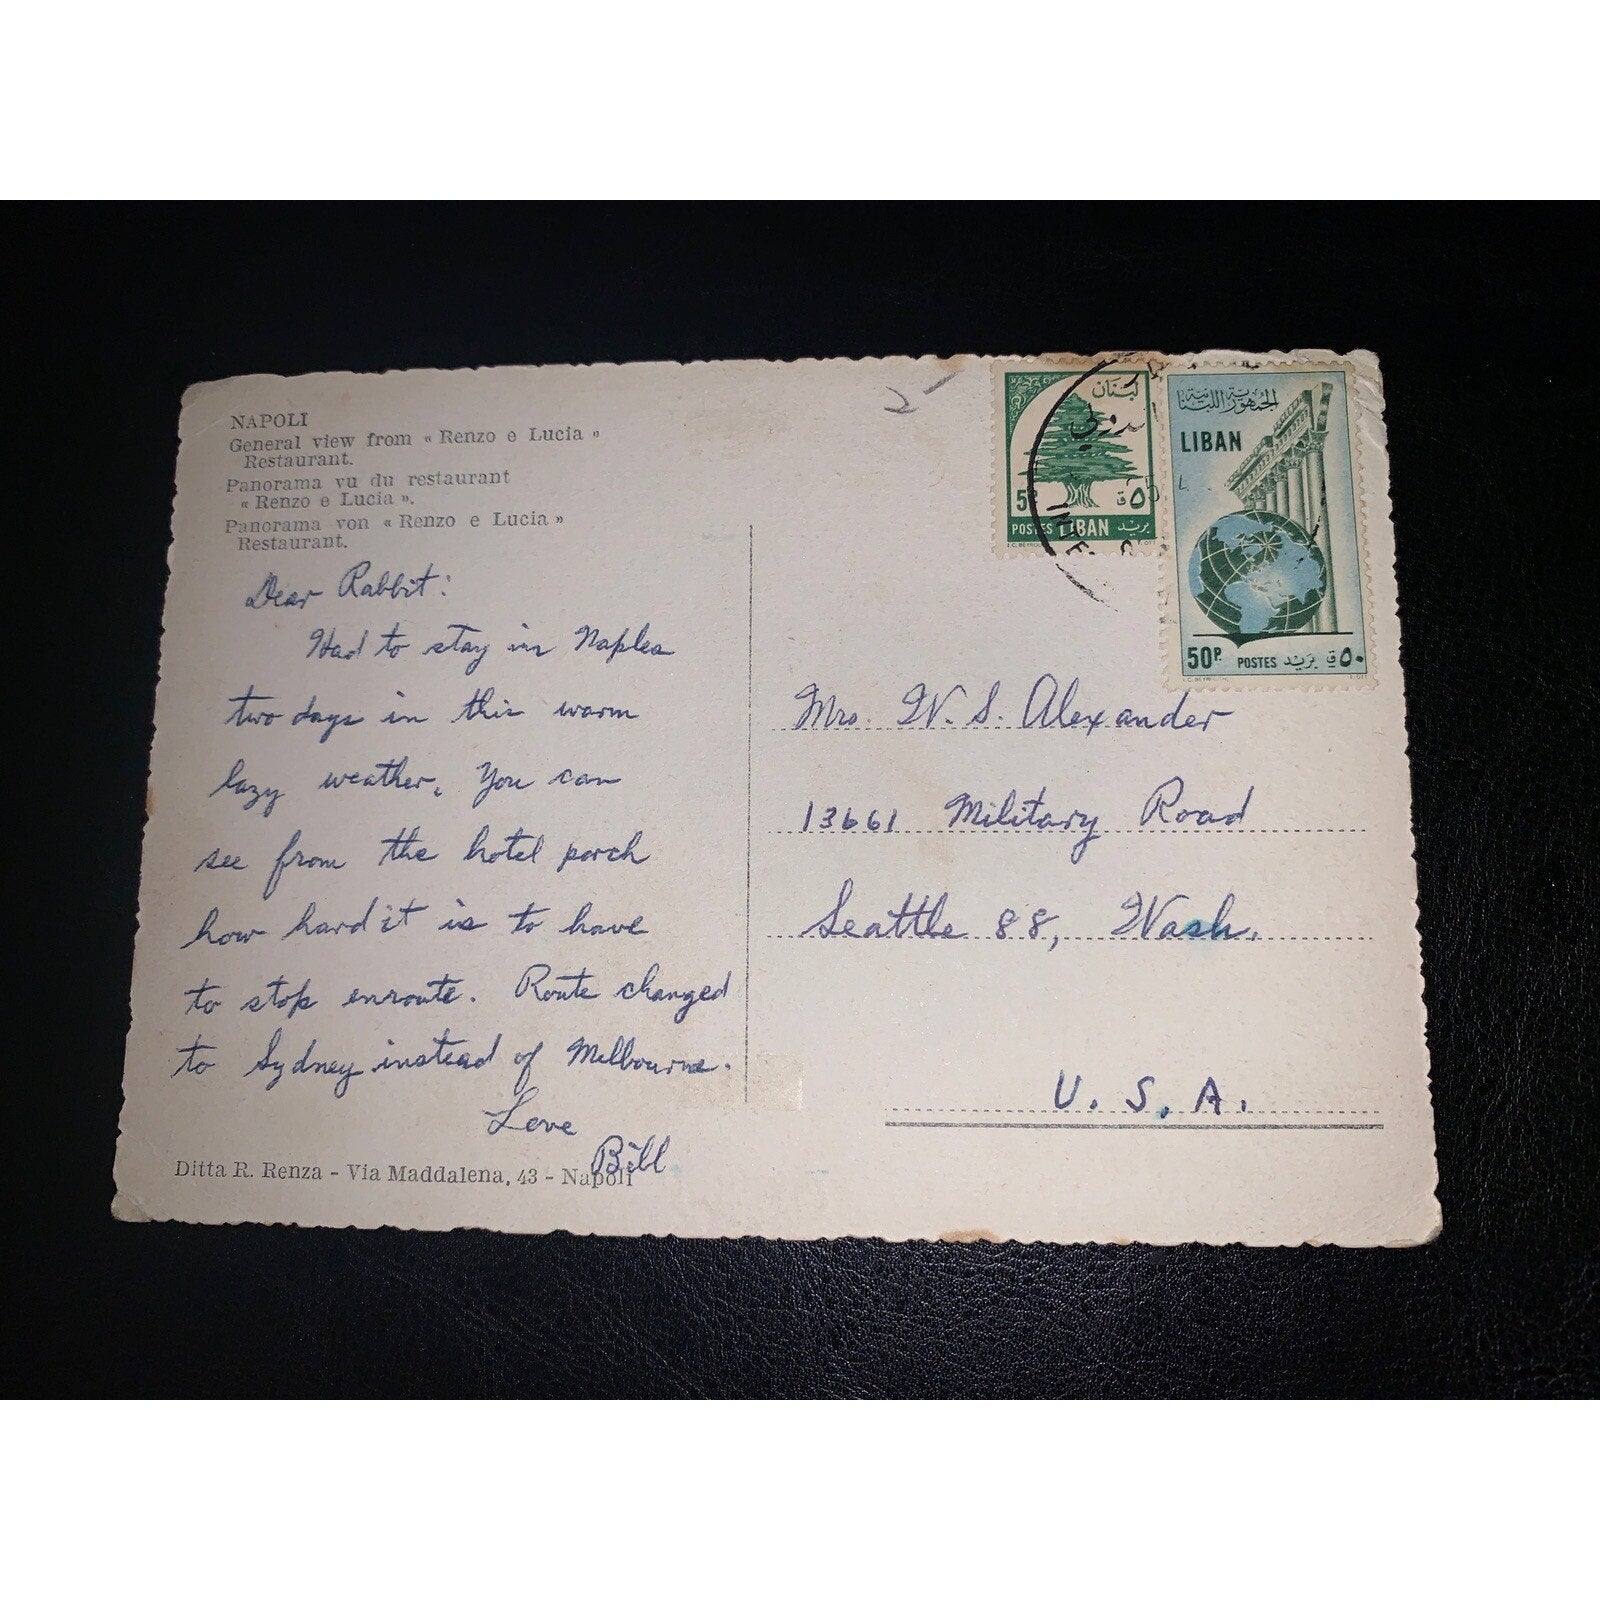 NAPOLI
General view from « Renzo e Lucia »
Restaurant.
Panorama vu du restaurant
« Renzo e Lucia ».
Panorama von « Renzo e Lucia »
Restaurant.
Dear Rabbit:
Had to stay in Naples
two days in this warm
lazy weather. You can
see from the hotel porch
how hard it is to have
to stop enroute. Route changed
to Sydney instead of Melbourne.
Love
Bill
Ditta R. Renza - Via Maddalena, 43 - Napoli
لبنان
5P ٥ق
POSTES LIBAN بريد
الجمهورية اللبنانية
LIBAN
50P. POSTES بريد ٥٠ق
Mrs. W. S. Alexander
13661 Military Road
Seattle 88, Wash.
U. S. A.